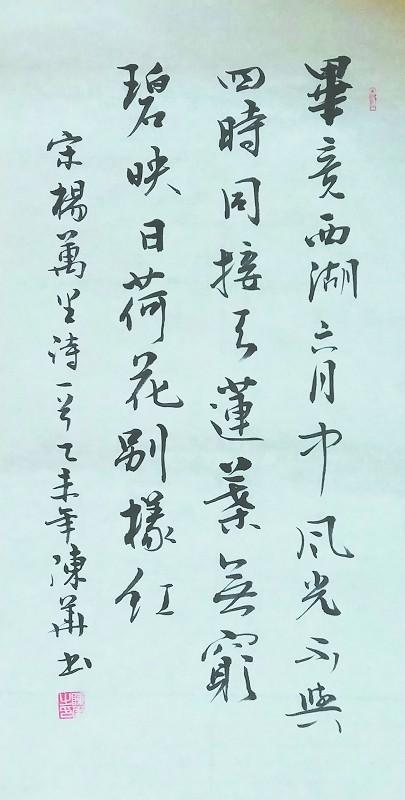 畢竟西湖六月中風光不與
四時同接天蓮葉無窮
碧映日荷花別樣紅
宋楊萬里詩一首乙未年陳華書